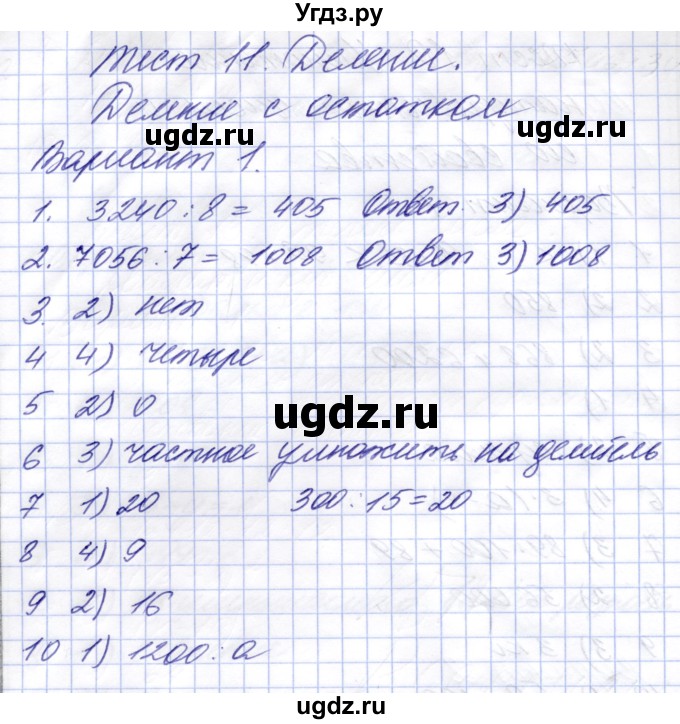 Угдз.ру
Тест 11. Деление.
Деление с остатком
ugdz.ru
ugdz.ru
Вариант 1.
1. 3240 : 8 = 405 Ответ 3) 405
2. 7056 : 7 = 1008 Ответ 3) 1008
3. 2) нет
4 4) четыре
5 2) 0
ugdz.ru
6 3) частное умножить на делитель
7 1) 20 300 : 15 = 20
8 4) 9
9 2) 16
10 1) 1200 : а
ugdz.ru